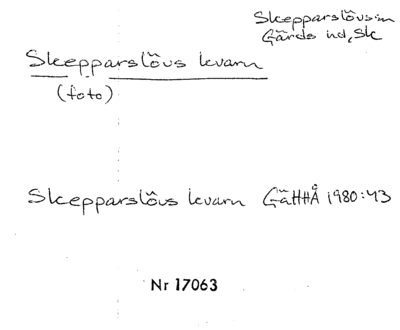 Skepparslövs sn
Gärds hd, Sk
Skepparslövs kvarn
(foto)
Skepparslövs kvarn GäHHÅ 1980:43
Nr 17063